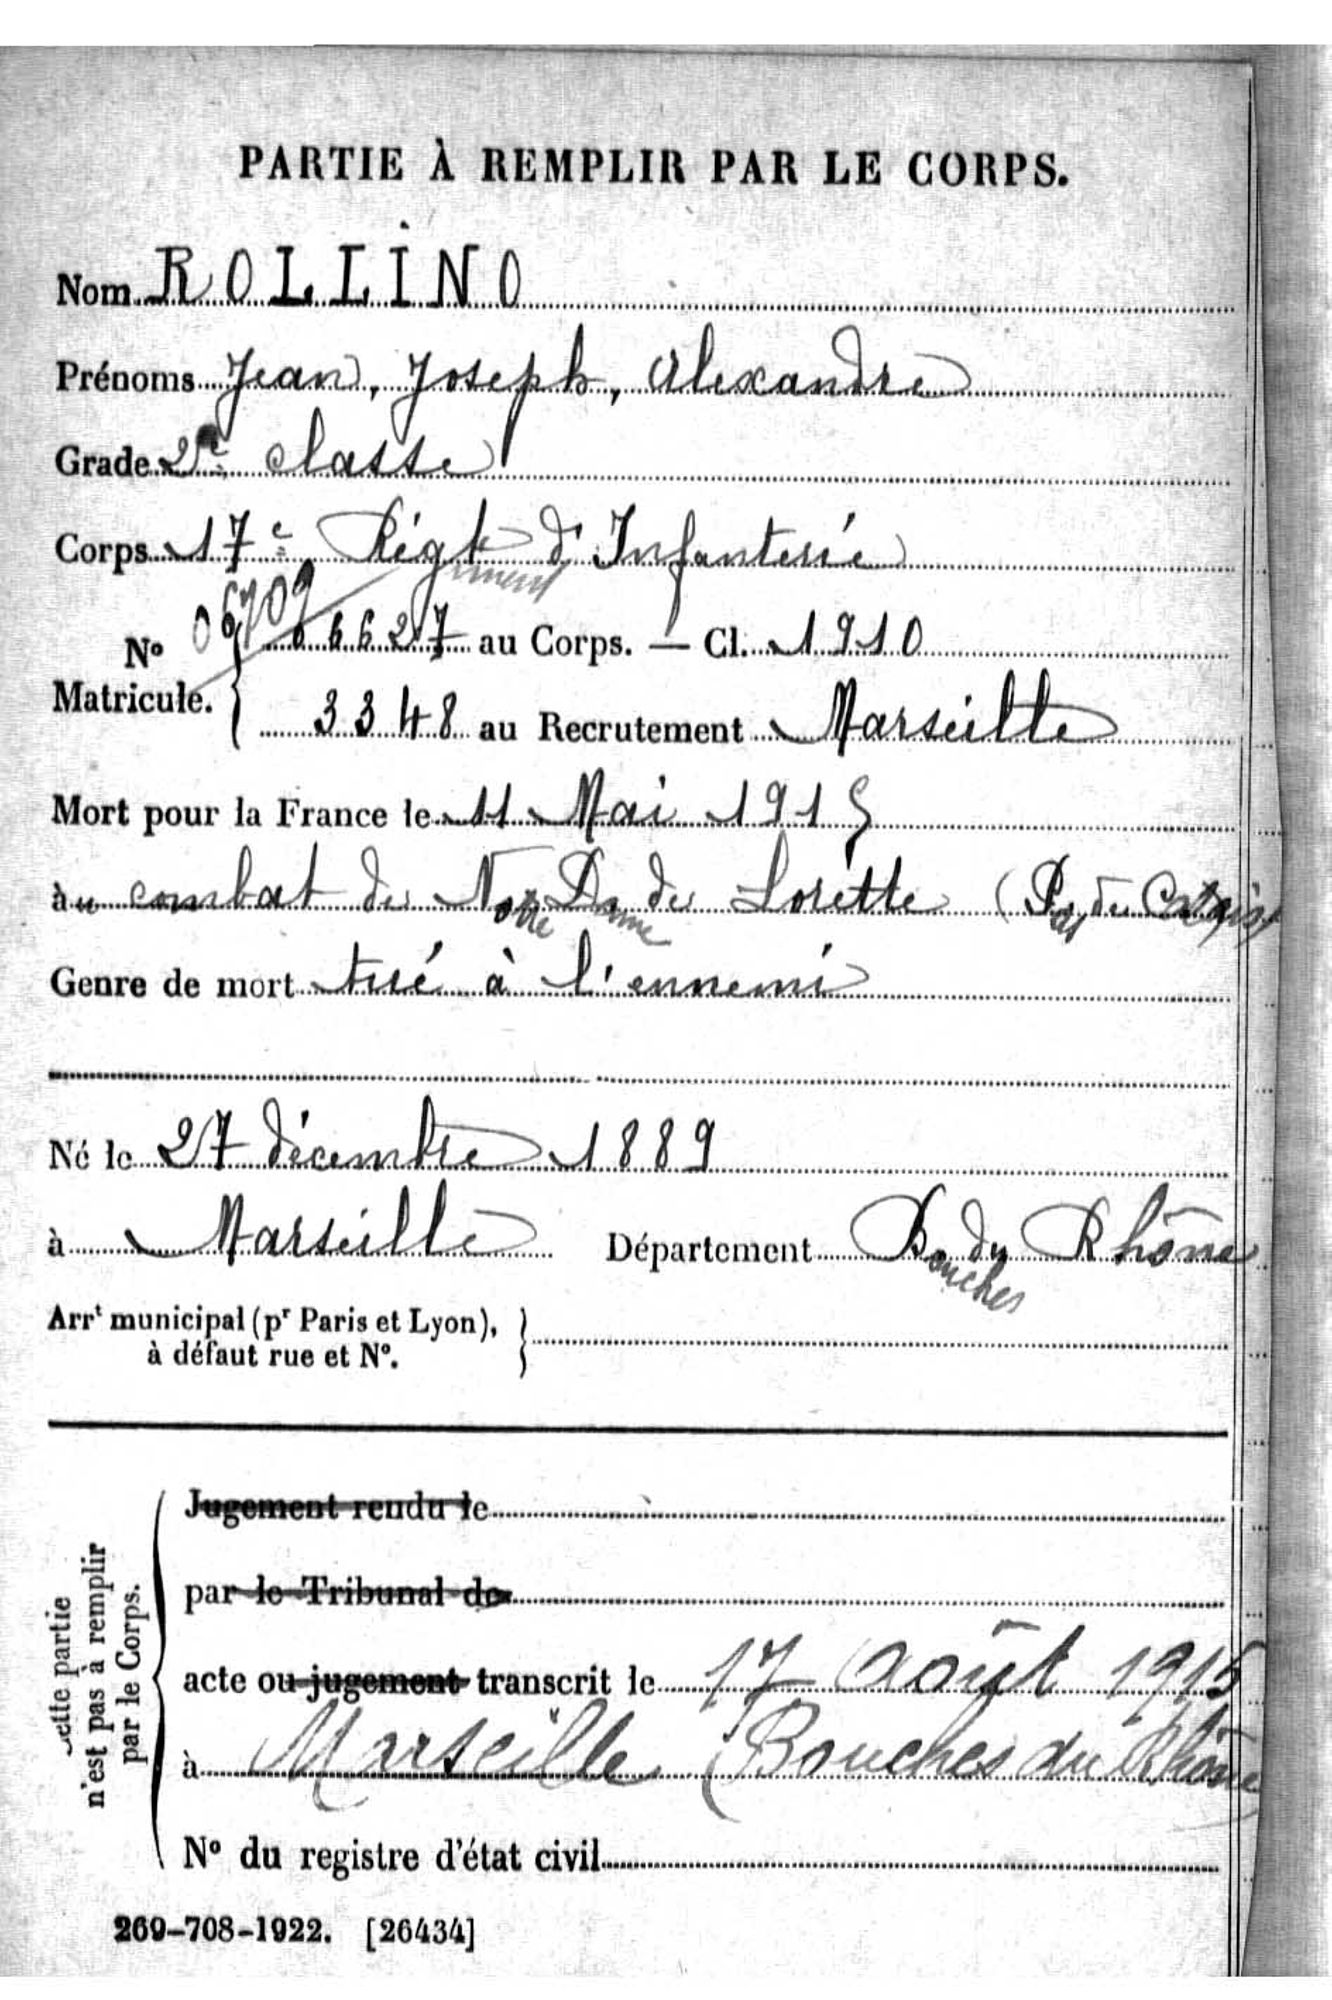 PARTIE À REMPLIR PAR LE CORPS.
Nom ROLLINO
Prénoms Jean, Joseph, Alexandre
Grade 2e classe
Corps 17e Régt d'Infanterie
iment
No Matricule. 06627 au Corps. — Cl. 1910
3348 au Recrutement Marseille
Mort pour la France le 11 Mai 1915
au combat de Notre Dame de Lorette (Pas de Calais)
Genre de mort tué à l'ennemi
Né le 27 décembre 1889
à Marseille Département Bouches du Rhône
Arrt municipal (pr Paris et Lyon),
à défaut rue et No.
Cette partie
n'est pas à remplir
par le Corps.
Jugement rendu le
par le Tribunal de
acte ou jugement transcrit le 17 août 1915
à Marseille (Bouches du Rhône)
No du registre d'état civil
269-708-1922. [26434]